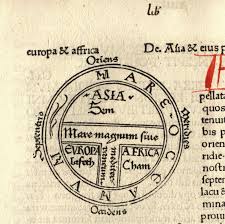 lib
europa & affrica
De. Asia & eius p
Oriens
MARE OCEANVM
Septentrio
Meridies
ASIA
Sem
Mare magnum siue
mediterraneum
EVROPA
Iafeth
AFRICA
Cham
pellata
quos
tenuit
bis p
orien
ridie
nostr
lacu &